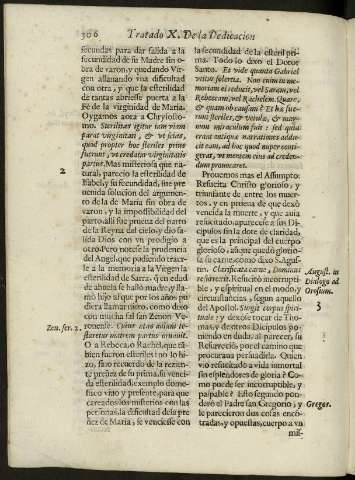 306 Tratado X. De la Dedicacion
fecundas para dar salida a la
fecundidad de su Madre sin o-
bra de varon, y quedando Vir-
gen allanando vna dificultad
con otra, y que la esterilidad
de tantas abriesse puerta a la
Fè de la virginidad de Maria.
Oygamos aora a Chrysosto-
mo. Sterilitas igitur iam viam
parat virginitati, & vt scias,
quod propter hoc steriles prius
fuerunt, vt credatur virginitatis
partus. Mas misteriosa que na-
tural, pareciò la esterilidad de
Isabel, y su fecundidad, fue pre-
venida solucion del argumen-
to de la de Maria sin obra de
varon, y la impossibilidad del
parto allì fue prueva del parto
de la Reyna del cielo, y diò sa-
lida Dios con vn prodigio a
otro. Pero notese la prudencia
del Angel, que pudiendo traer-
le a la memoria a la Virgen la
esterilidad de Sarra, que en edad
de abuela se hallò madre, y lla-
mò hijo al que por los años pu-
diera llamar nieto, como dixo
con mucha sal san Zenon Ve-
ronense.
O a Rebeca, o Rachel, que tam-
bien fueron esteriles no lo hi-
zo, sino recuerdo de la rezien-
te preñez de su prima, su venci-
da esterilidad, exemplo domes-
tico vivo, y presente, para que
careados los misterios con las
personas, la dificultad de la pre-
ñez de Maria, se venciesse con
la fecundidad de la esteril pri-
ma. Todo lo dixo el Dotor
Santo. Et vide quanta Gabriel
vtitur solertia. Non enim in me-
moriam ei reducit, vel Saram, vel
Rebeccam, vel Rachelem. Quare,
& quam ob causam? Et hæ fue-
runt steriles, & vetulæ, & mag-
num miraculum fuit: sed quia
erant antiquæ narrationes addu-
cit eam, ad hoc quod nuper conti-
gerat, vt mentem eius ad creden-
dum provocaret.
Provemos mas el Assumpto.
Resucita Christo glorioso, y
triunfante de entre los muer-
tos, y en prueva de que dexò
vencida la muerte, y que avia
resucitado, aparecese a sus Di-
cipulos sin la dote de claridad,
que es la principal del cuerpo
glorioso, aũ que quedò glorio-
sa su carne, como dixo S. Agus-
tin. Clarificata carne, Dominus
resurrexit. Resucitò incorrupti-
ble, y espiritual en el modo, y
circunstãcias, segun aquello
del Apostol. Surgit corpus spiri-
tale; y dexòse tocar de Tho-
mas, y de otros Dicipulos po-
niendo en duda, al parecer, su
Resurreciõ, por el camino que
procurava persuadirla. Quien
viò resucitado a vida inmortal
sin esplendores de gloria? Co-
mo puede ser incorruptible, y
palpable? Esto segundo pon-
derò el Padre san Gregorio, y
le parecieron dos cosas encõ-
tradas, y opuestas, cuerpo a vn
mis-
2
Zen. ser. 2.
August. in
Dialogo ad
Orosium.
3
Gregor.